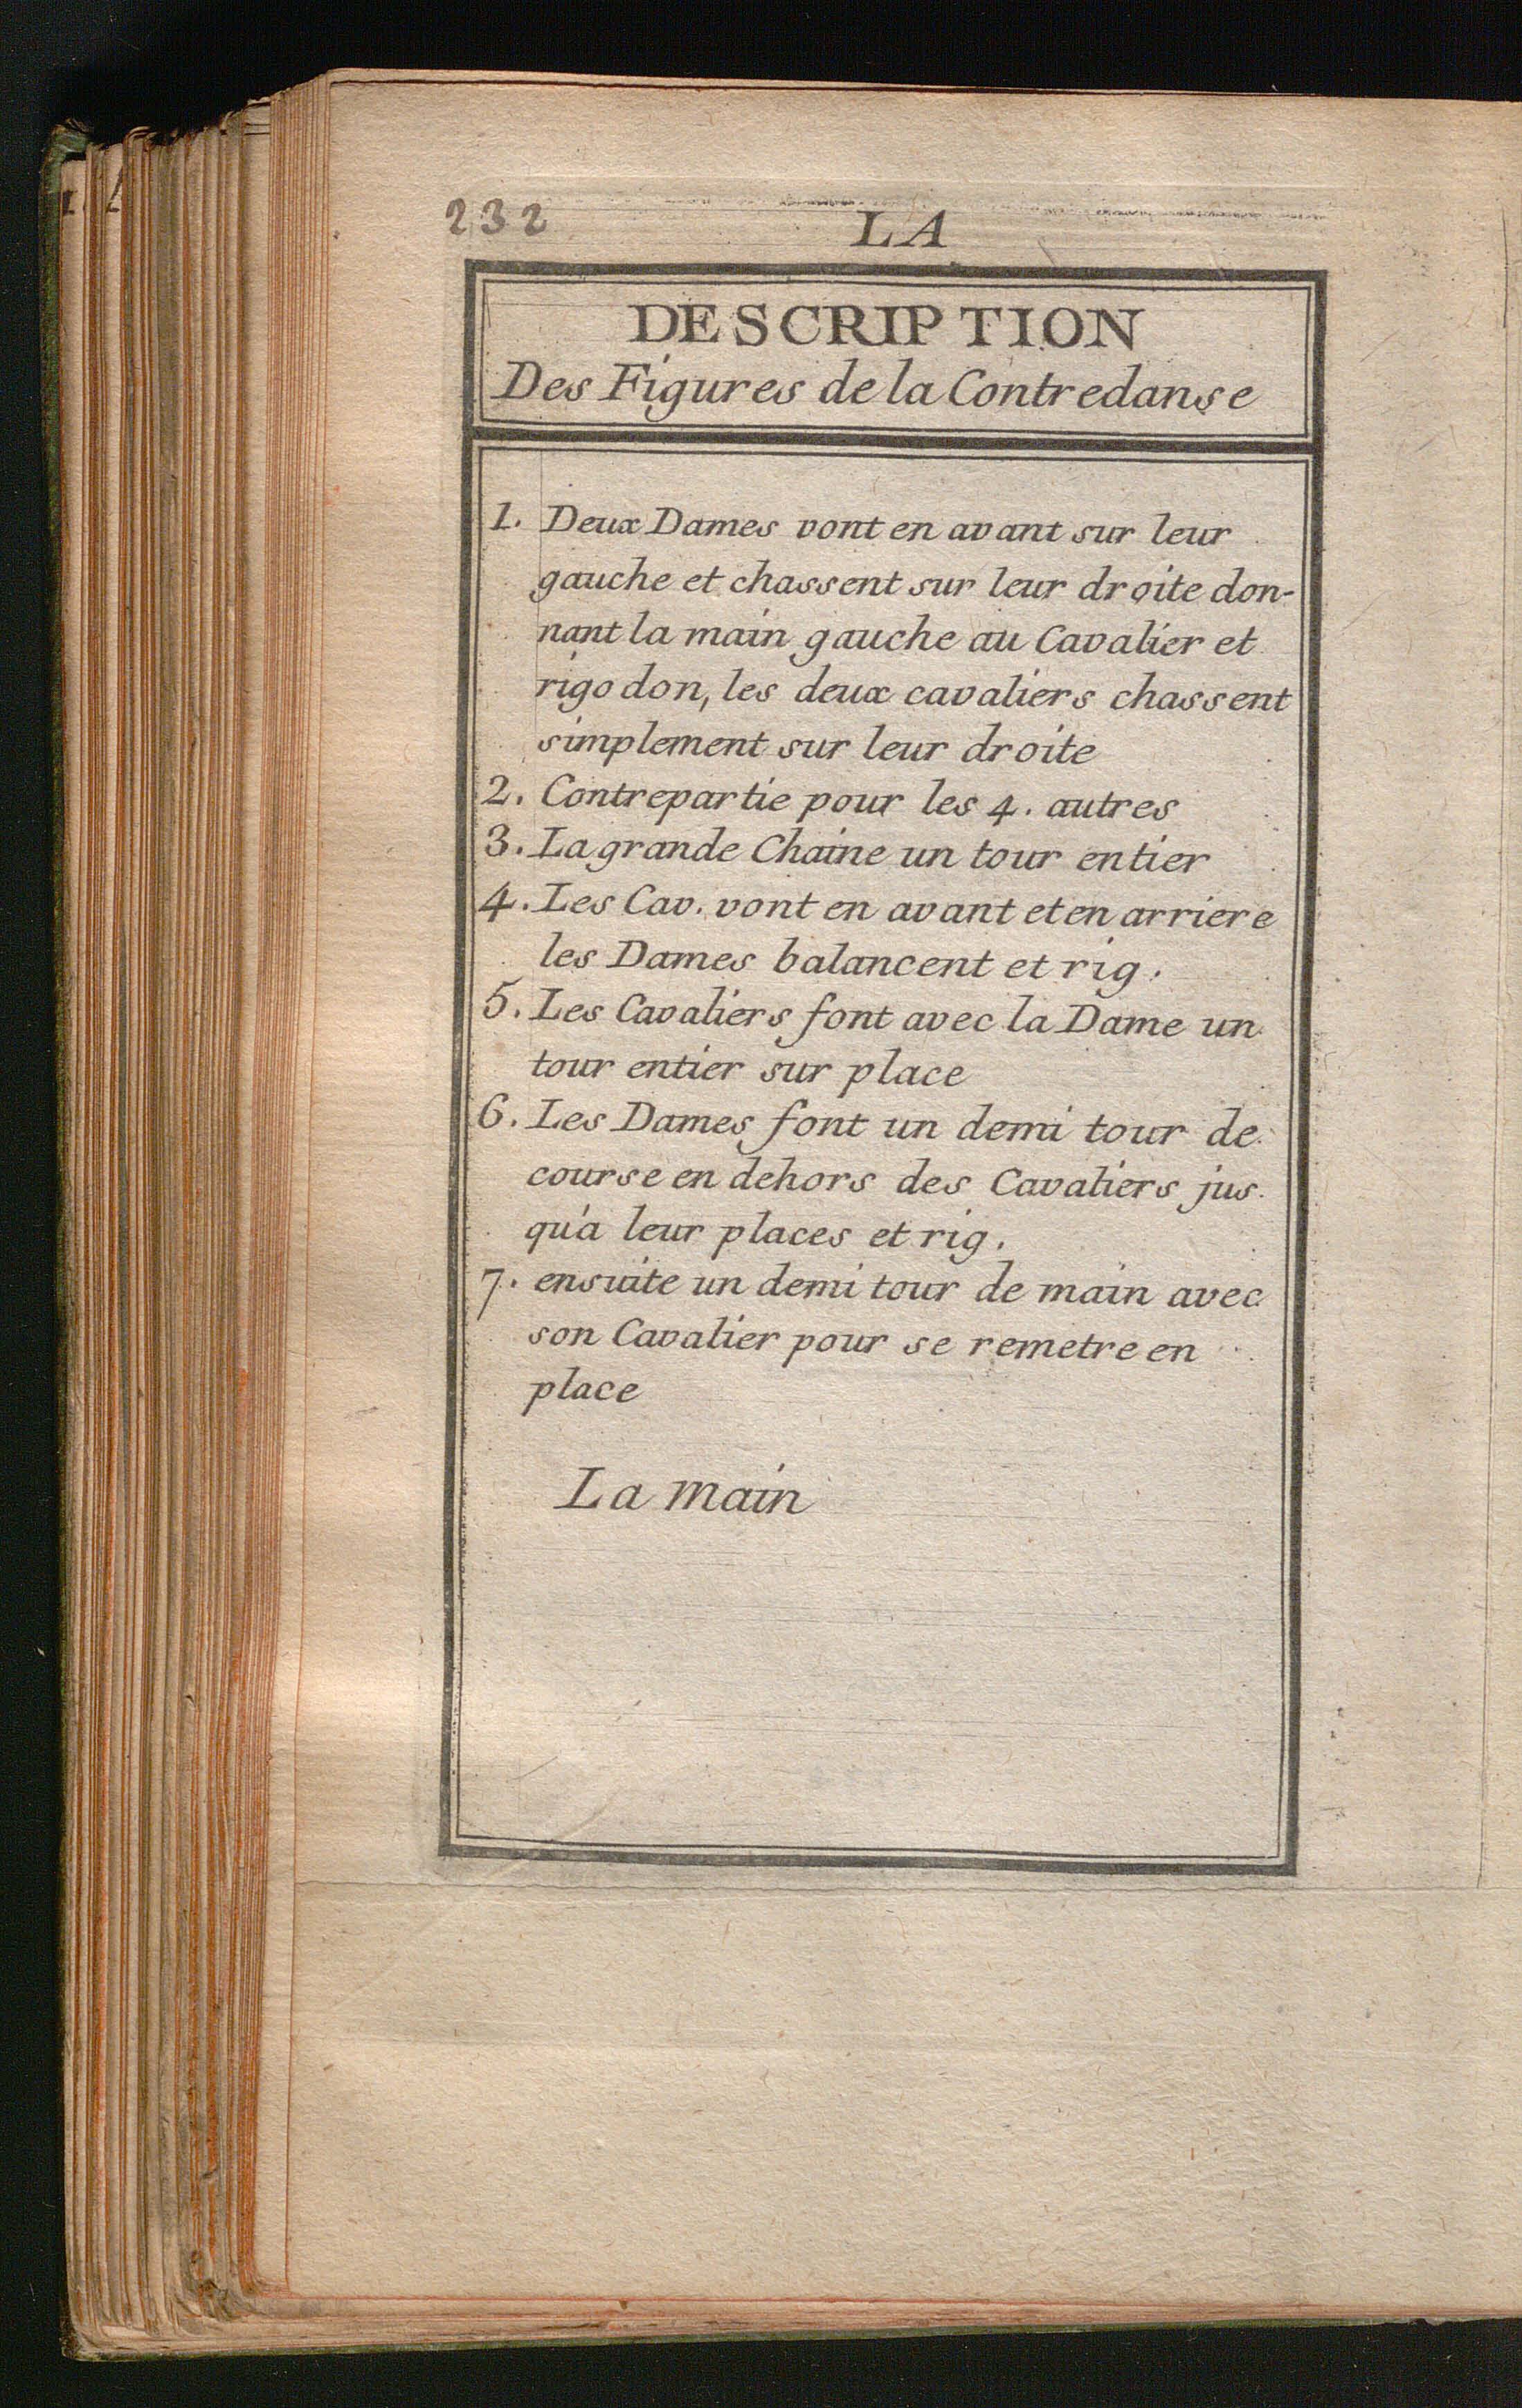 232
LA
DESCRIPTION
Des Figures de la Contredanse
1. Deux Dames vont en avant sur leur
gauche et chassent sur leur droite don-
nant la main gauche au Cavalier et
rigodon, les deux cavaliers chassent
simplement sur leur droite
2. Contrepartie pour les 4. autres
3. La grande Chaine un tour entier
4. Les Cav. vont en avant et en arriere
les Dames balancent et rig.
5. Les Cavaliers font avec la Dame un
tour entier sur place
6. Les Dames font un demi tour de
course en dehors des Cavaliers jus
qu'a leur places et rig.
7. ensuite un demi tour de main avec
son Cavalier pour se remetre en
place
La main